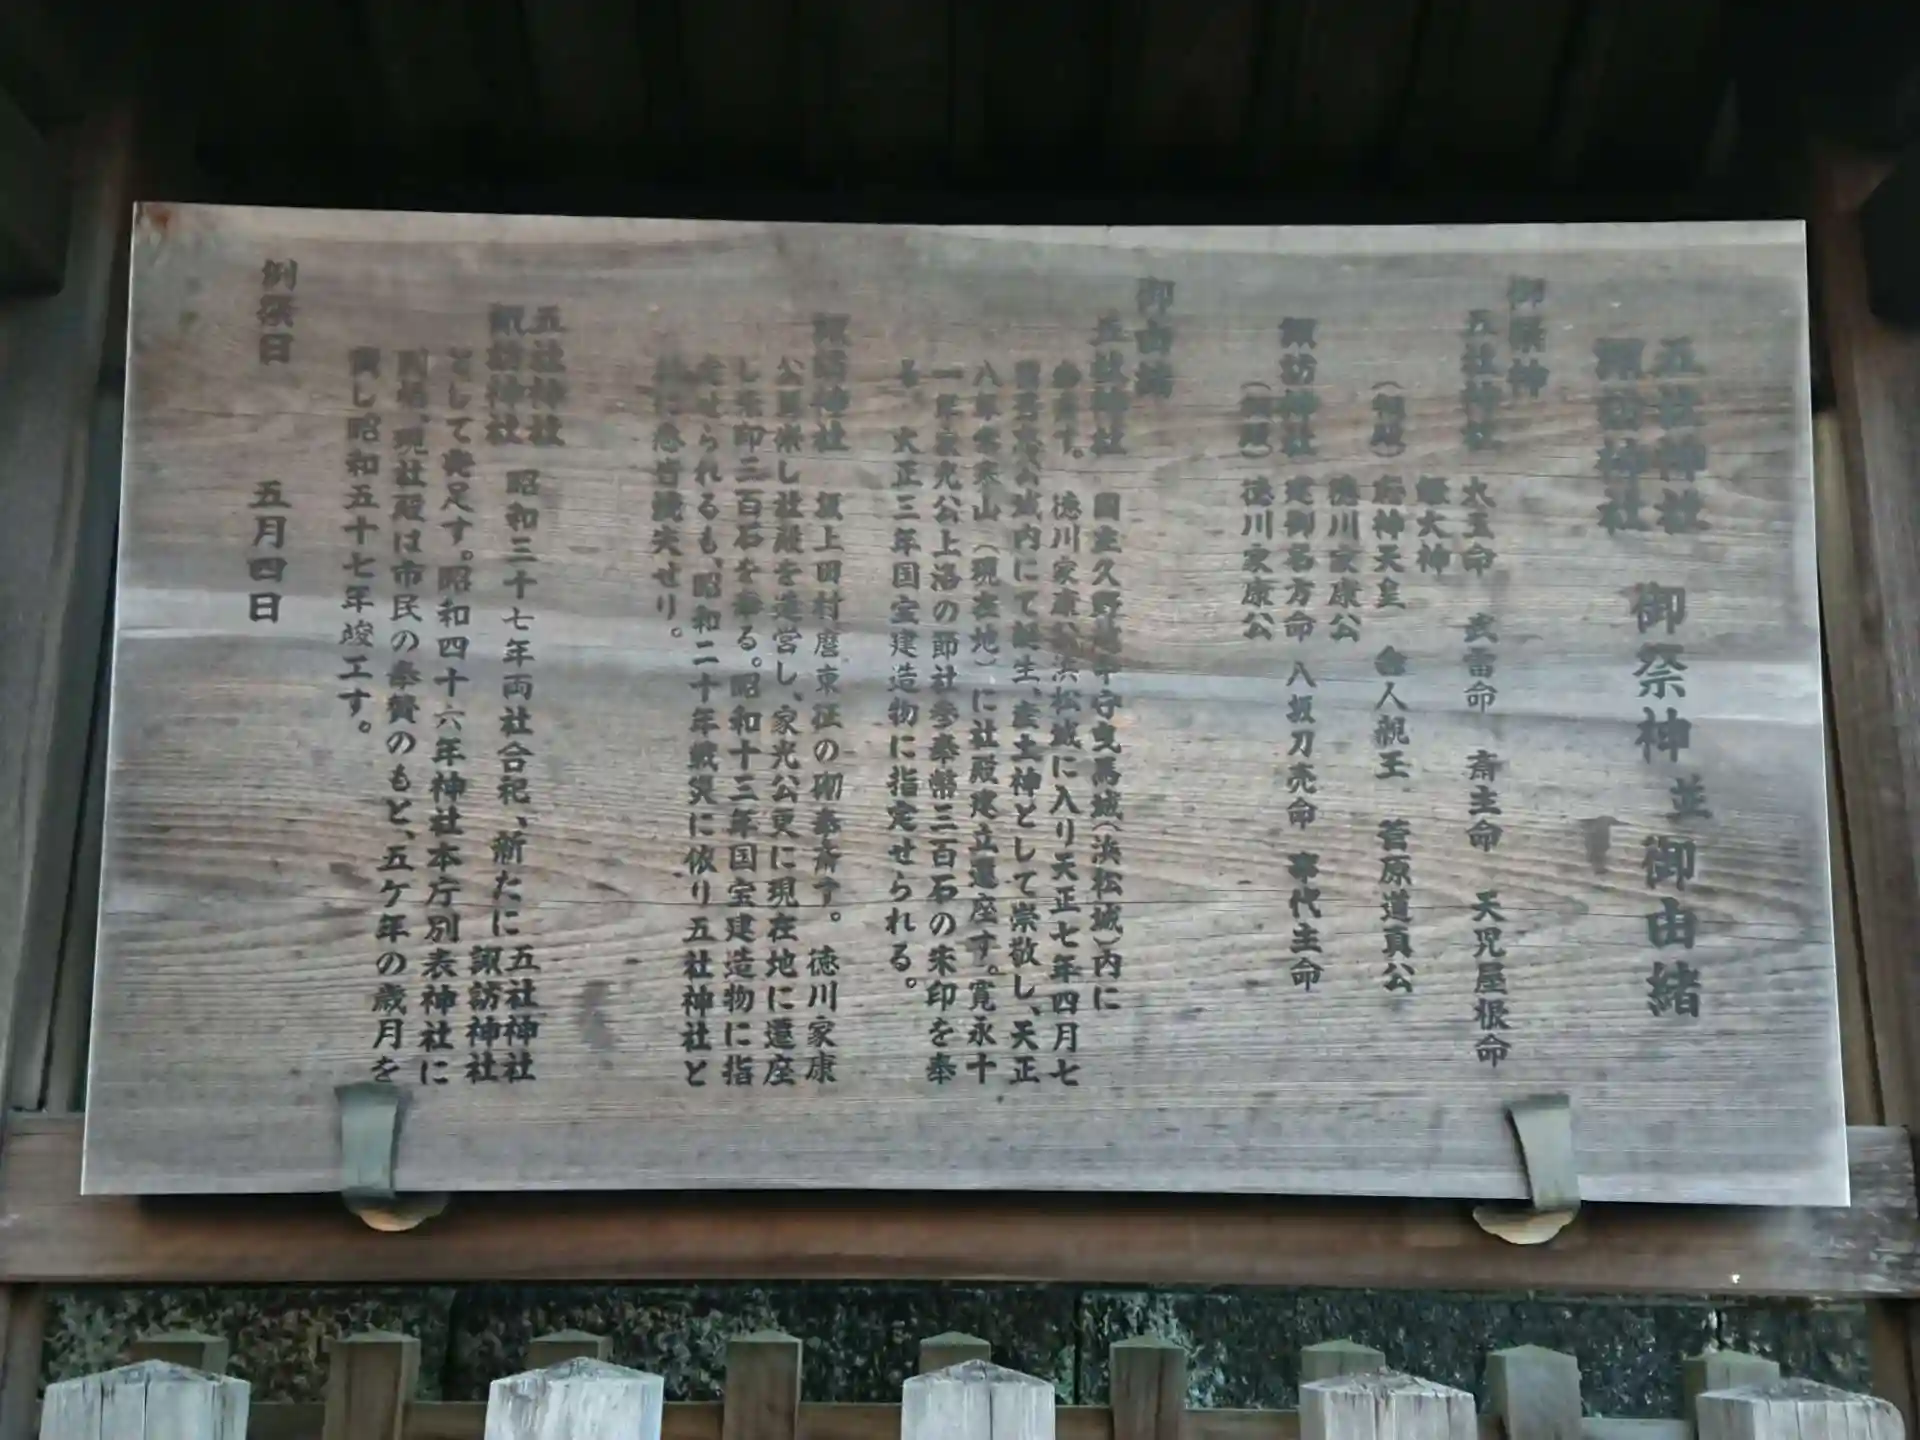 五社神社
諏訪神社
御祭神並御由緒
御祭神
五社神社 太玉命 武雷命 斎主命 天児屋根命
姫大神
(相殿)応神天皇 舎人親王 菅原道真公
徳川家康公
諏訪神社 建御名方命 八坂刀売命 事代主命
(相殿)徳川家康公
御由緒
五社神社 国主久野越中守曳馬城(浜松城)内に
す。徳川家康公浜松城に入り天正七年四月七
公城内にて誕生、産土神として崇敬し、天正
八年常寒山(現在地)に社殿建立遷座す。寛永十
一年家光公上洛の節社参奉幣三百石の朱印を奉
る。大正三年国宝建造物に指定せられる。
諏訪神社 坂上田村麿東征の砌奉斎す。徳川家康
公崇し社殿を造営し、家光公更に現在地に遷座
し朱印三百石を奉る。昭和十三年国宝建造物に指
定せられるも、昭和二十年戦災に依り五社神社と
共に悉皆焼失せり。
五社神社
諏訪神社
昭和三十七年両社合祀、新たに五社神社
諏訪神社
として発足す。昭和四十六年神社本庁別表神社に
現社殿は市民の奉賛のもと、五ケ年の歳月を
し昭和五十七年竣工す。
例祭日 五月四日